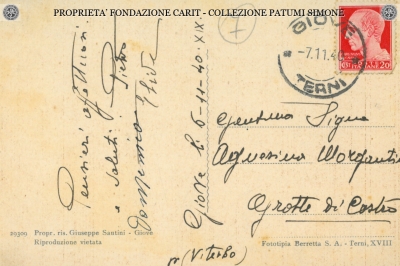 PROPRIETA' FONDAZIONE CARIT - COLLEZIONE PATUMI SIMONE
Pensieri affettuosi
e saluti
Domenica
Giove li 6-11-40 XIX
GIOVE
-7.11.40
TERNI
20
Gentma Signa
Agnesina Morganti
Grotte di Castro
(Viterbo)
20300 Propr. ris. Giuseppe Santini - Giove
Riproduzione vietata
Fototipia Berretta S. A. - Terni, XVIII